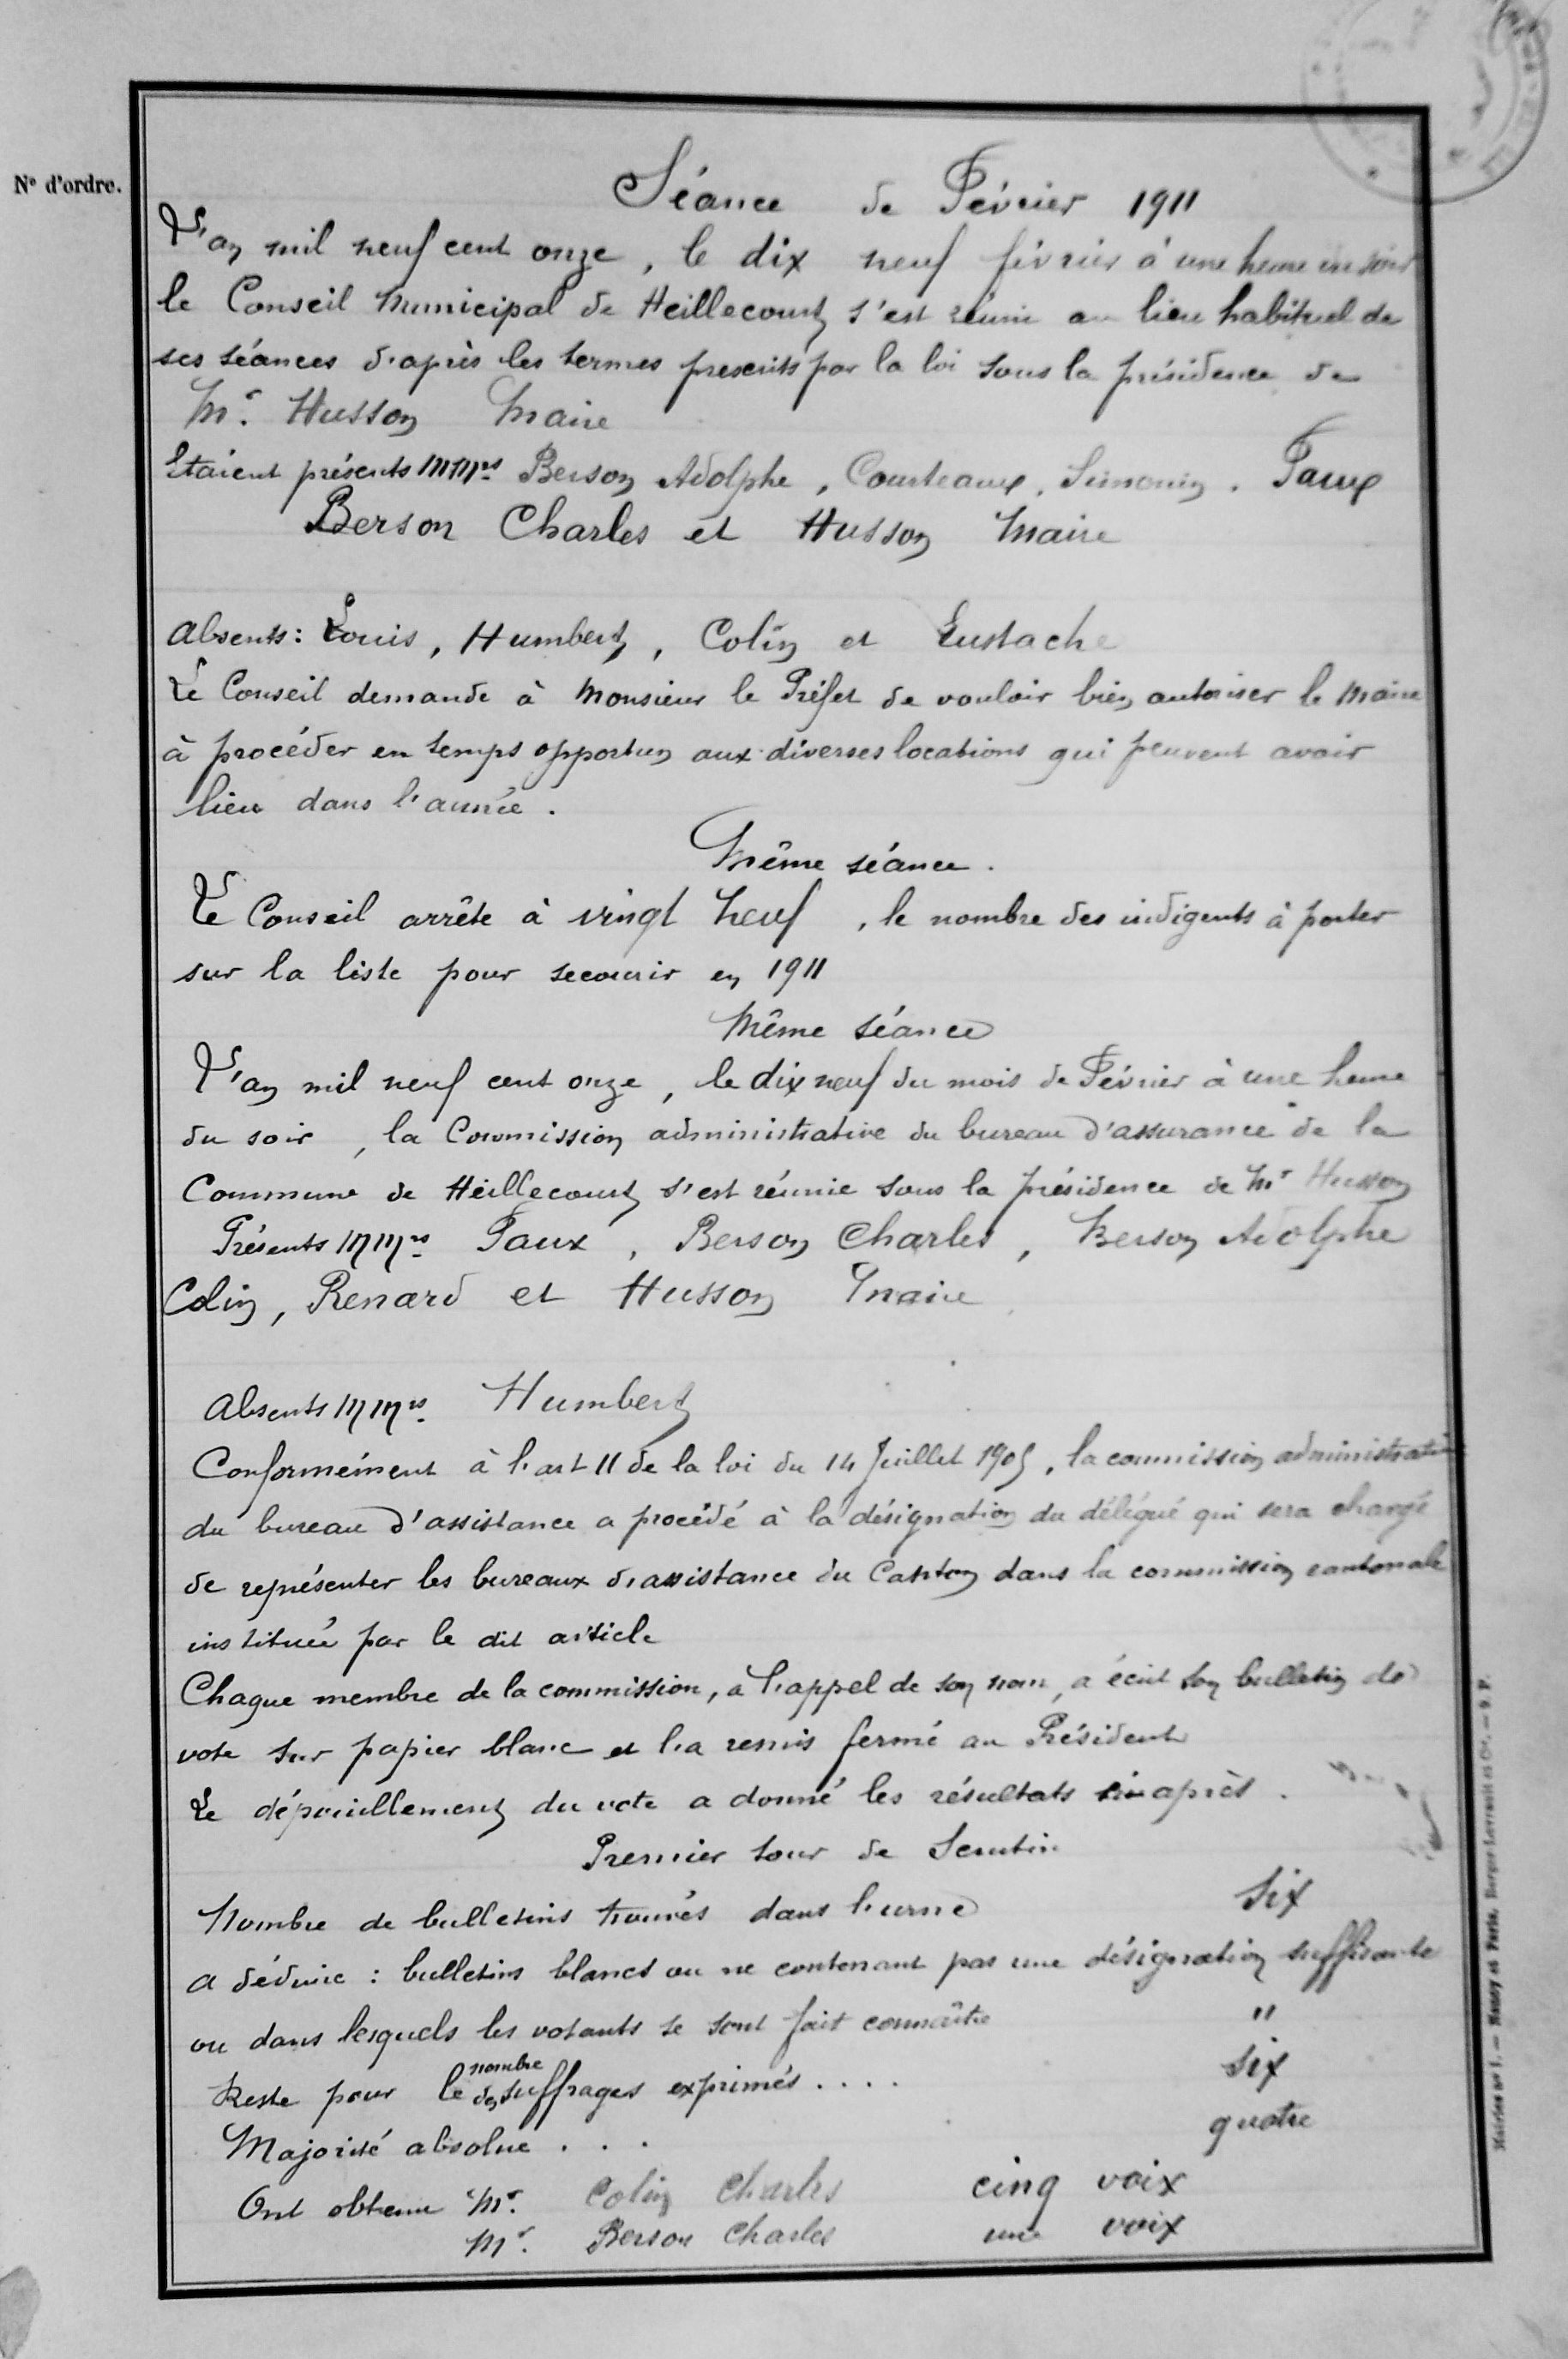 N° d'ordre.
Séance de Février 1911
L'an mil neuf cent onze, le dix neuf février à une heure du soir
le Conseil Municipal de Heillecourt s'est réuni au lieu habituel de
ses séances d'après les termes prescrits par la loi sous la présidence de
Mr. Husson Maire
Etaient présents MMrs Berson Adolphe, Courteaux, Simonin, Paux
Berson Charles et Husson Maire
Absents : Louis, Humbert, Colin et Eustache
Le Conseil demande à Monsieur le Préfet de vouloir bien autoriser le Maire
à procéder en temps opportun aux diverses locations qui peuvent avoir
lieu dans l'année.
Même séance.
Le Conseil arrête à vingt neuf, le nombre des indigents à porter
sur la liste pour secourir en 1911
Même séance
L'an mil neuf cent onze, le dix neuf du mois de Février à une heure
du soir, la Commission administrative du bureau d'assurance de la
Commune de Heillecourt s'est réunie sous la présidence de Mr Husson
Présents MMrs Paux, Berson Charles, Berson Adolphe
Colin, Renard et Husson Maire
Absents MMrs Humbert
Conformément à l'art 11 de la loi du 14 Juillet 1905, la commission administrative
du bureau d'assistance a procédé à la désignation du délégué qui sera chargé
de représenter les bureaux d'assistance du Canton dans la commission cantonale
instituée par le dit article
Chaque membre de la commission, à l'appel de son nom, a écrit son bulletin de
vote sur papier blanc et l'a remis fermé au Président
Le dépouillement du vote a donné les résultats ci-après.
Premier tour de Scrutin
Nombre de bulletins trouvés dans l'urne six
A déduire : bulletins blancs ou ne contenant pas une désignation suffisante
ou dans lesquels les votants se sont fait connaître "
Reste pour le nombre des suffrages exprimés .... six
Majorité absolue ... quatre
Ont obtenu Mr. Colin Charles cinq voix
Mr. Berson Charles une voix
Mairies n° 1. — Nancy et Paris, Berger-Levrault et Cie. — 9 P.